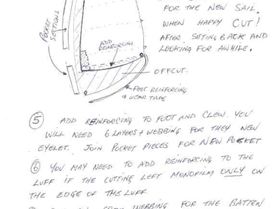 FOR THE NEW SAIL.
WHEN HAPPY CUT!
AFTER SITTING BACK AND
LOOKING FOR AWHILE.
POCKET
SECTIONS
ADD
REINFORCING
OFFCUT.
FOOT REINFORCING
WEAR TAPE
5 ADD REINFORCING TO FOOT AND CLEW. YOU
WILL NEED 6 LAYERS & WEBBING FOR THEY NEW
EYELET. JOIN POCKET PIECES FOR NEW POCKET
6 YOU MAY NEED TO ADD REINFORCING TO THE
LUFF IF THE CUTTING LEFT MONOFILM ONLY ON
THE EDGE OF THE LUFF
WEBBING FOR THE BATTEN